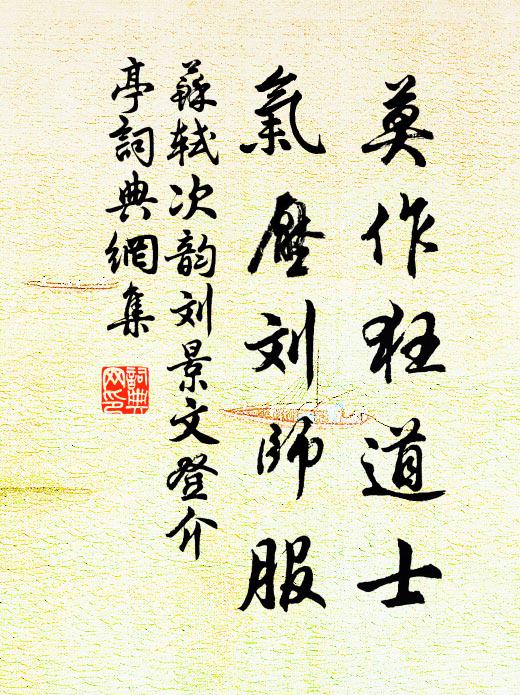 莫作狂道士
氣壓刘師服
蘇轼次韵刘景文登介
亭詞典網集
詞典
网印